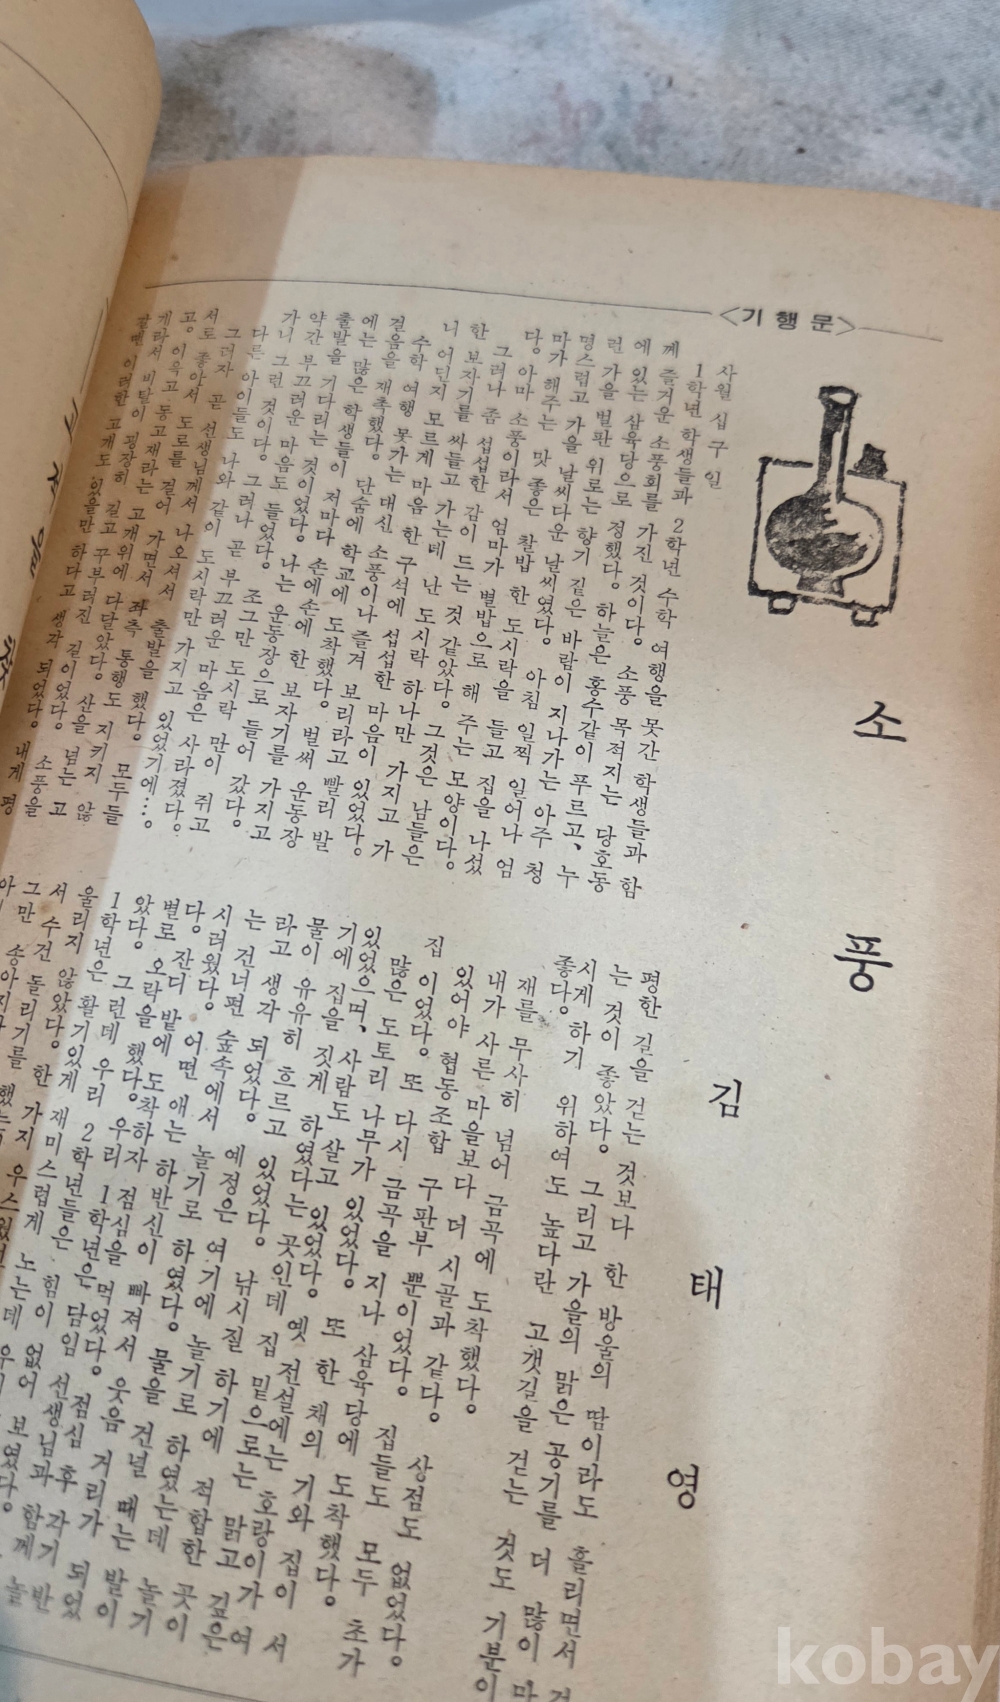 <기 행 문>
소 풍
김 태 영
사월 십구 일
1학년 학생들과 2학년 수학 여행을 못간 학생들과 함
께 즐거운 소풍회를 가진 것이다. 소풍 목적지는 당호동
에 있는 삼육당으로 정했다. 하늘은 홍수같이 푸르고, 누
런 가을 벌판 위로는 향기 짙은 바람이 지나가는 아주 청
명스럽고 가을 날씨다운 날씨였다. 아침 일찍 일어나 엄
마가 해주는 맛 좋은 찰밥 한 도시락을 들고 집을 나섰
다. 아마 소풍이라서 엄마가 별밥으로 해 주는 모양이다.
그러나 좀 섭섭한 감이 드는 것 같았다. 그것은 남들은
한 보자기를 싸들고 가는데 난 도시락 하나만 가지고 가
니 어딘지 모르게 마음 한 구석에 섭섭한 마음이 있었다.
수학 여행 못가는 대신 소풍이나 즐겨 보리라고 빨리 발
걸음을 재촉했다. 단숨에 학교에 도착했다. 벌써 운동장
에는 많은 학생들이 저마다 손에손에 한 보자기를 가지고
출발을 기다리는 것이었다. 나는 운동장으로 들어 갔다.
약간 부끄러운 마음도 들었다. 조그만 도시락 만이 쥐고
가니 그런 것이다. 그러나 곧 부끄러운 마음은 사라졌다.
다른 아이들도 나와 같이 도시락만 가지고 있었기에….
그러자 곧 선생님께서 나오셔서 출발을 했다. 모두들
서로 좋아서 도로를 걸어 가면서 좌측 통행도 지키지 않
공 이윽고 동고재라는 고개위에 다달았다. 산을 넘는 고
게라서 비탈이 굉장히 길고 꾸부러진 길이었다. 소풍을
갈땐 이러한 고개도 있을만 하다고 생각 되었다. 내게 평
평한 길을 걷는 것보다 한 방울의 땀이라도 흘리면서 걷
는 것이 좋았다. 그리고 가을의 맑은 공기를 더 많이 마
시게 하기 위하여도 높다란 고갯길을 걷는 것도 기분이
좋다.
재를 무사히 넘어 금곡에 도착했다.
내가 사른 마을보다 더 시골과 같다. 상점도 없었다.
있어야 협동조합 구판부 뿐이었다. 집들도 모두 초가
집이었다. 또 다시 금곡을 지나 삼육당에 도착했다.
많은 도토리 나무가 있었다. 또 한 채의 기와 집이 서
있었으며, 사람도 살고 있었다. 옛 전설에는 호랑이가 여
기에 집을 짓게 하였다는 곳인데 집 밑으로는 맑고 깊은
물이 유유히 흐르고 있었다. 낚시질 하기에 적합한 곳이
라고 생각 되었다. 예정은 여기에 놀기로 하였는데 놀기
는 건너편 숲속에서 놀기로 하였다. 물을 건널 때는 발이
시러웠다. 어떤 애는 하반신이 빠져서 웃음 거리가 되었
다. 잔디 밭에 도착하자 점심을 먹었다. 점심 후 각기 반
별로 오락을 했다. 우리 1학년은 담임 선생님과 함께 놀
았다. 그런데 우리 2학년들은 힘이 없어 보였다.
1학년은 활기있게 재미스럽게 노는데
울리지 않았다. 한 가지 우스웠
서 수건 돌리기를 했는
그만 송아지